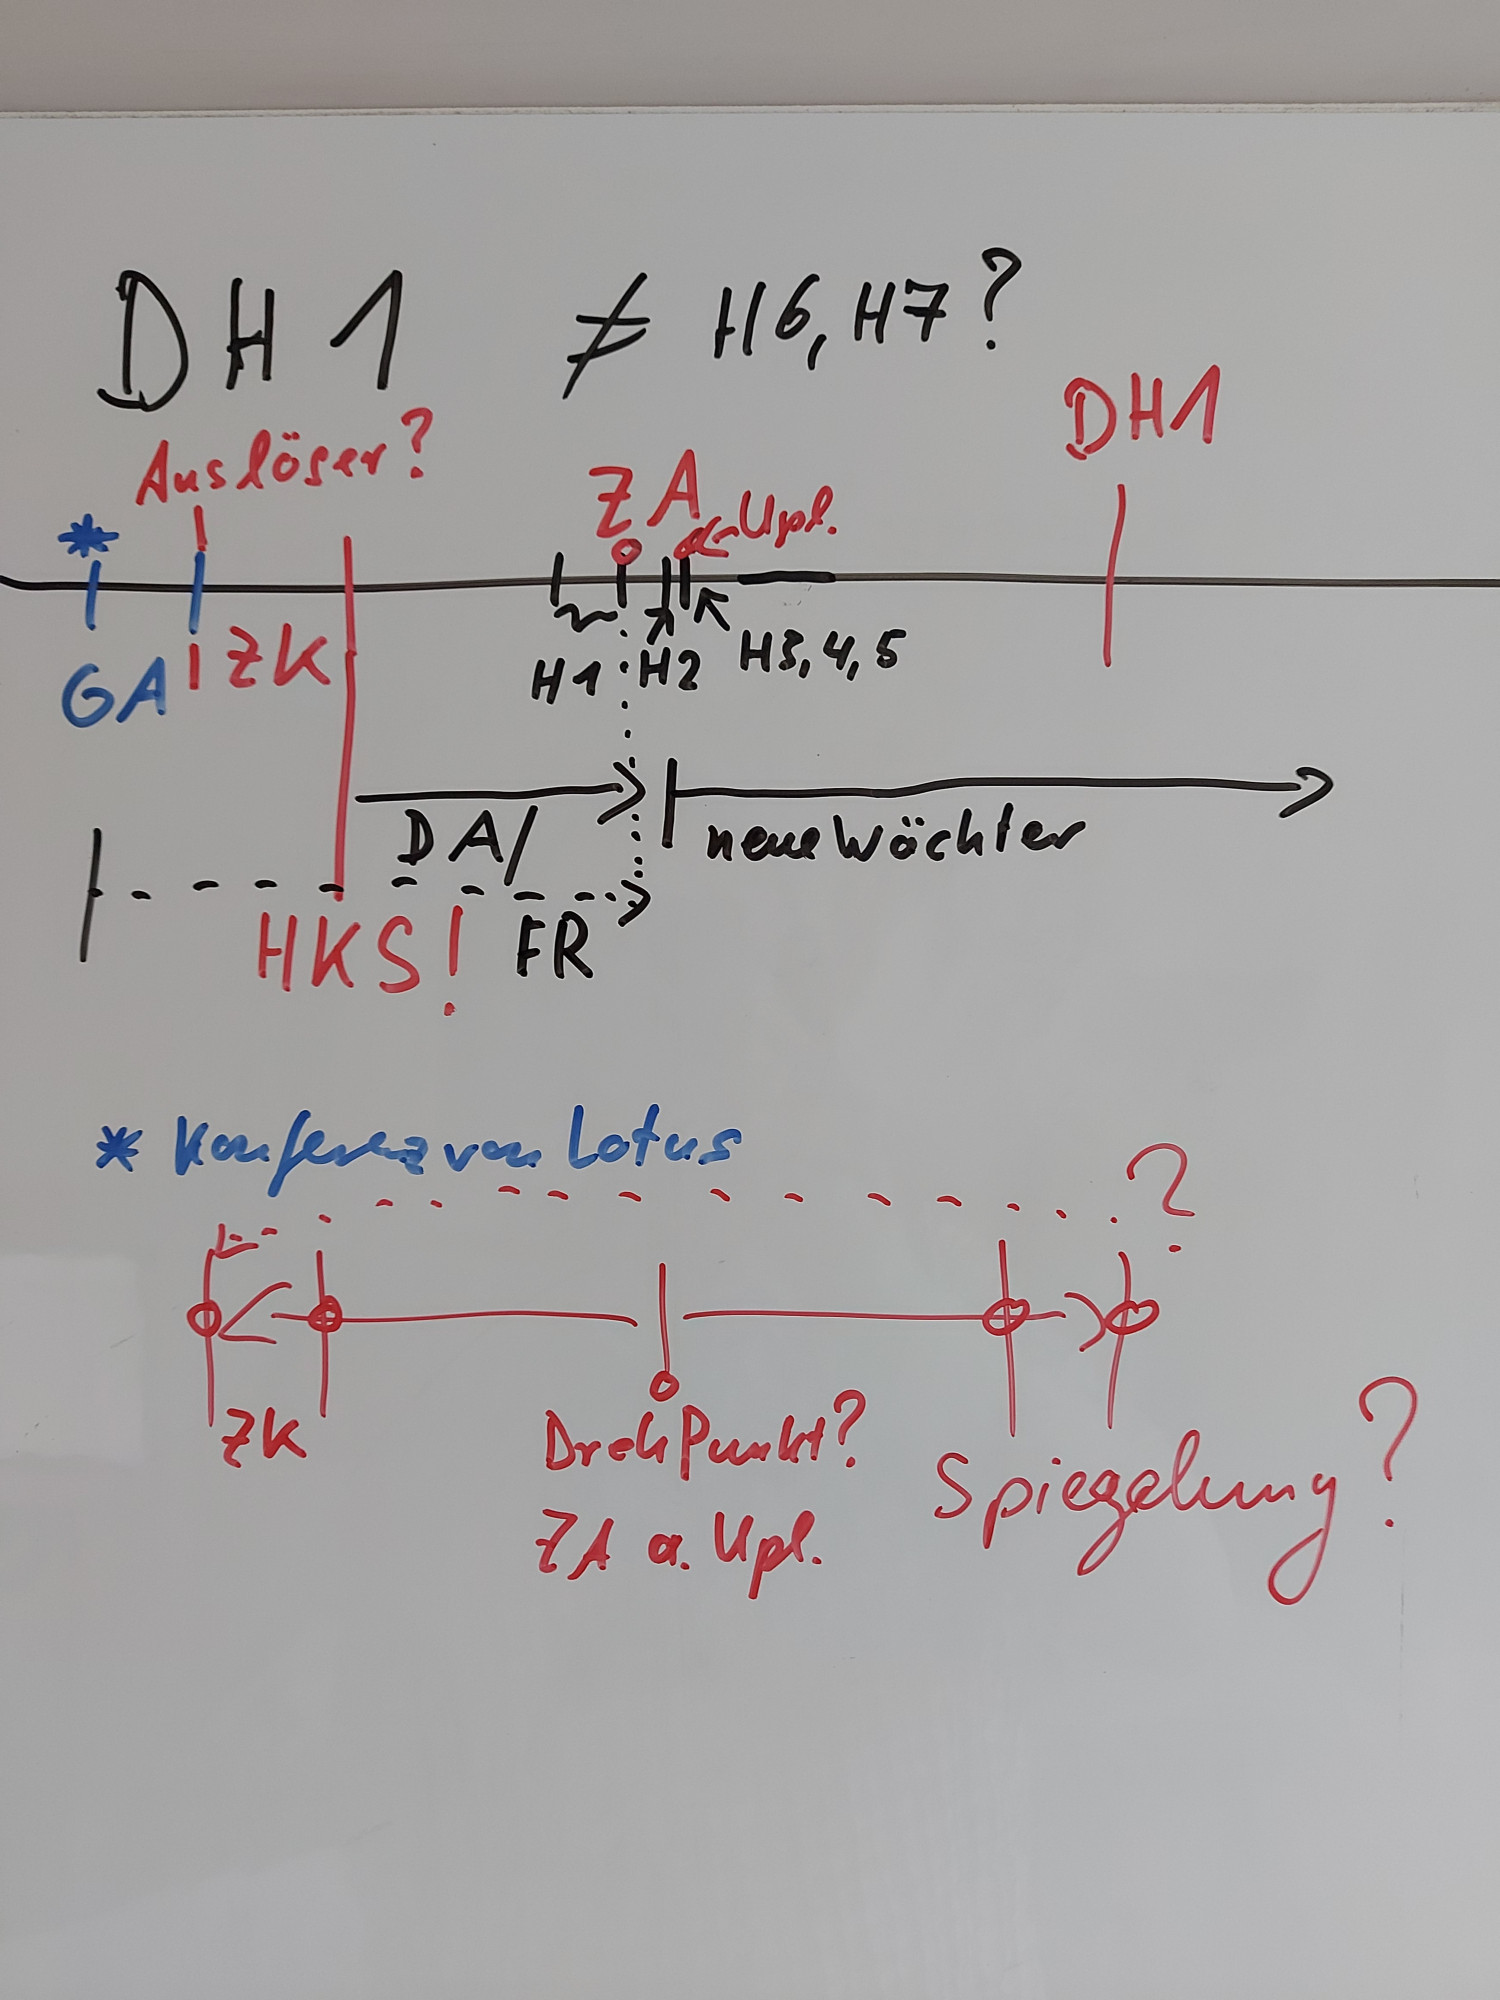 DH1 ≠ H6, H7?
DH1
Auslöser?
ZA
←Upl.
*
GA
ZK
H1
H2
H3,4,5
DA/
neue Wächter
HKS!
FR
* Konferenz von Lotus
?
ZK
DrehPunkt?
ZA a. Upl.
Spiegelung?